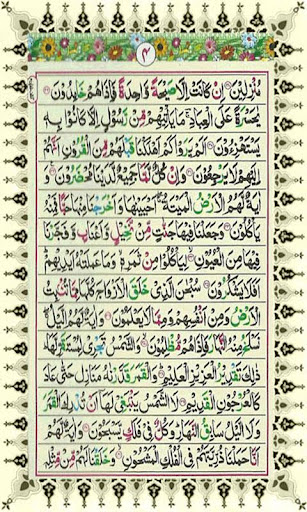 ۴
مُنۡزِلِیۡنَ ۝ اِنۡ کَانَتۡ اِلَّا صَیۡحَۃً وَّاحِدَۃً فَاِذَا هُمۡ خٰمِدُوۡنَ ۝
یٰحَسۡرَۃً عَلَی الۡعِبَادِ ۚ مَا یَاۡتِیۡهِمۡ مِّنۡ رَّسُوۡلٍ اِلَّا کَانُوۡا بِهٖ
یَسۡتَهۡزِءُوۡنَ ۝ اَلَمۡ یَرَوۡا کَمۡ اَهۡلَکۡنَا قَبۡلَهُمۡ مِّنَ الۡقُرُوۡنِ اَنَّهُمۡ
اِلَیۡهِمۡ لَا یَرۡجِعُوۡنَ ۝ وَاِنۡ کُلٌّ لَّمَّا جَمِیۡعٌ لَّدَیۡنَا مُحۡضَرُوۡنَ ۝ وَ
اٰیَۃٌ لَّهُمُ الۡاَرۡضُ الۡمَیۡتَۃُ ۚ اَحۡیَیۡنٰهَا وَاَخۡرَجۡنَا مِنۡهَا حَبًّا فَمِنۡهُ
یَاۡکُلُوۡنَ ۝ وَجَعَلۡنَا فِیۡهَا جَنّٰتٍ مِّنۡ نَّخِیۡلٍ وَّاَعۡنَابٍ وَّفَجَّرۡنَا
فِیۡهَا مِنَ الۡعُیُوۡنِ ۝ لِیَاۡکُلُوۡا مِنۡ ثَمَرِهٖ ۙ وَمَا عَمِلَتۡهُ اَیۡدِیۡهِمۡ ؕ
اَفَلَا یَشۡکُرُوۡنَ ۝ سُبۡحٰنَ الَّذِیۡ خَلَقَ الۡاَزۡوَاجَ کُلَّهَا مِمَّا تُنۡۢبِتُ
الۡاَرۡضُ وَمِنۡ اَنۡفُسِهِمۡ وَمِمَّا لَا یَعۡلَمُوۡنَ ۝ وَاٰیَۃٌ لَّهُمُ الَّیۡلُ ۖ
نَسۡلَخُ مِنۡهُ النَّهَارَ فَاِذَا هُمۡ مُّظۡلِمُوۡنَ ۝ وَالشَّمۡسُ تَجۡرِیۡ لِمُسۡتَقَرٍّ لَّهَا ؕ
ذٰلِکَ تَقۡدِیۡرُ الۡعَزِیۡزِ الۡعَلِیۡمِ ۝ وَالۡقَمَرَ قَدَّرۡنٰهُ مَنَازِلَ حَتّٰی عَادَ
کَالۡعُرۡجُوۡنِ الۡقَدِیۡمِ ۝ لَا الشَّمۡسُ یَنۡۢبَغِیۡ لَهَاۤ اَنۡ تُدۡرِکَ الۡقَمَرَ
وَلَا الَّیۡلُ سَابِقُ النَّهَارِ ؕ وَکُلٌّ فِیۡ فَلَکٍ یَّسۡبَحُوۡنَ ۝ وَاٰیَۃٌ لَّهُمۡ
اَنَّا حَمَلۡنَا ذُرِّیَّتَهُمۡ فِی الۡفُلۡکِ الۡمَشۡحُوۡنِ ۝ وَخَلَقۡنَا لَهُمۡ مِّنۡ مِّثۡلِهٖ